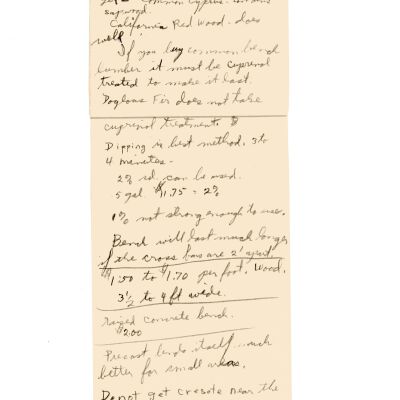 common cyprus. contains
sapwood.
California Red wood - does
well!
If you buy common bench
lumber it must be cuprinol
treated to make it last.
Doglous Fir does not take
cuprinol treatment.
Dipping is best method. 3 to
4 minutes -
2% sol. can be used.
5 gal. $11.75 = 2%
1% not strong enough to use.
Bench will last much longer
if the cross bars are 2' apart.
$1.50 to $1.70 per foot. Wood.
3 1/2 to 4 ft wide.
raised concrete bench.
$2.00
Precast lends itself much
better for small areas.
Do not get creosote near the